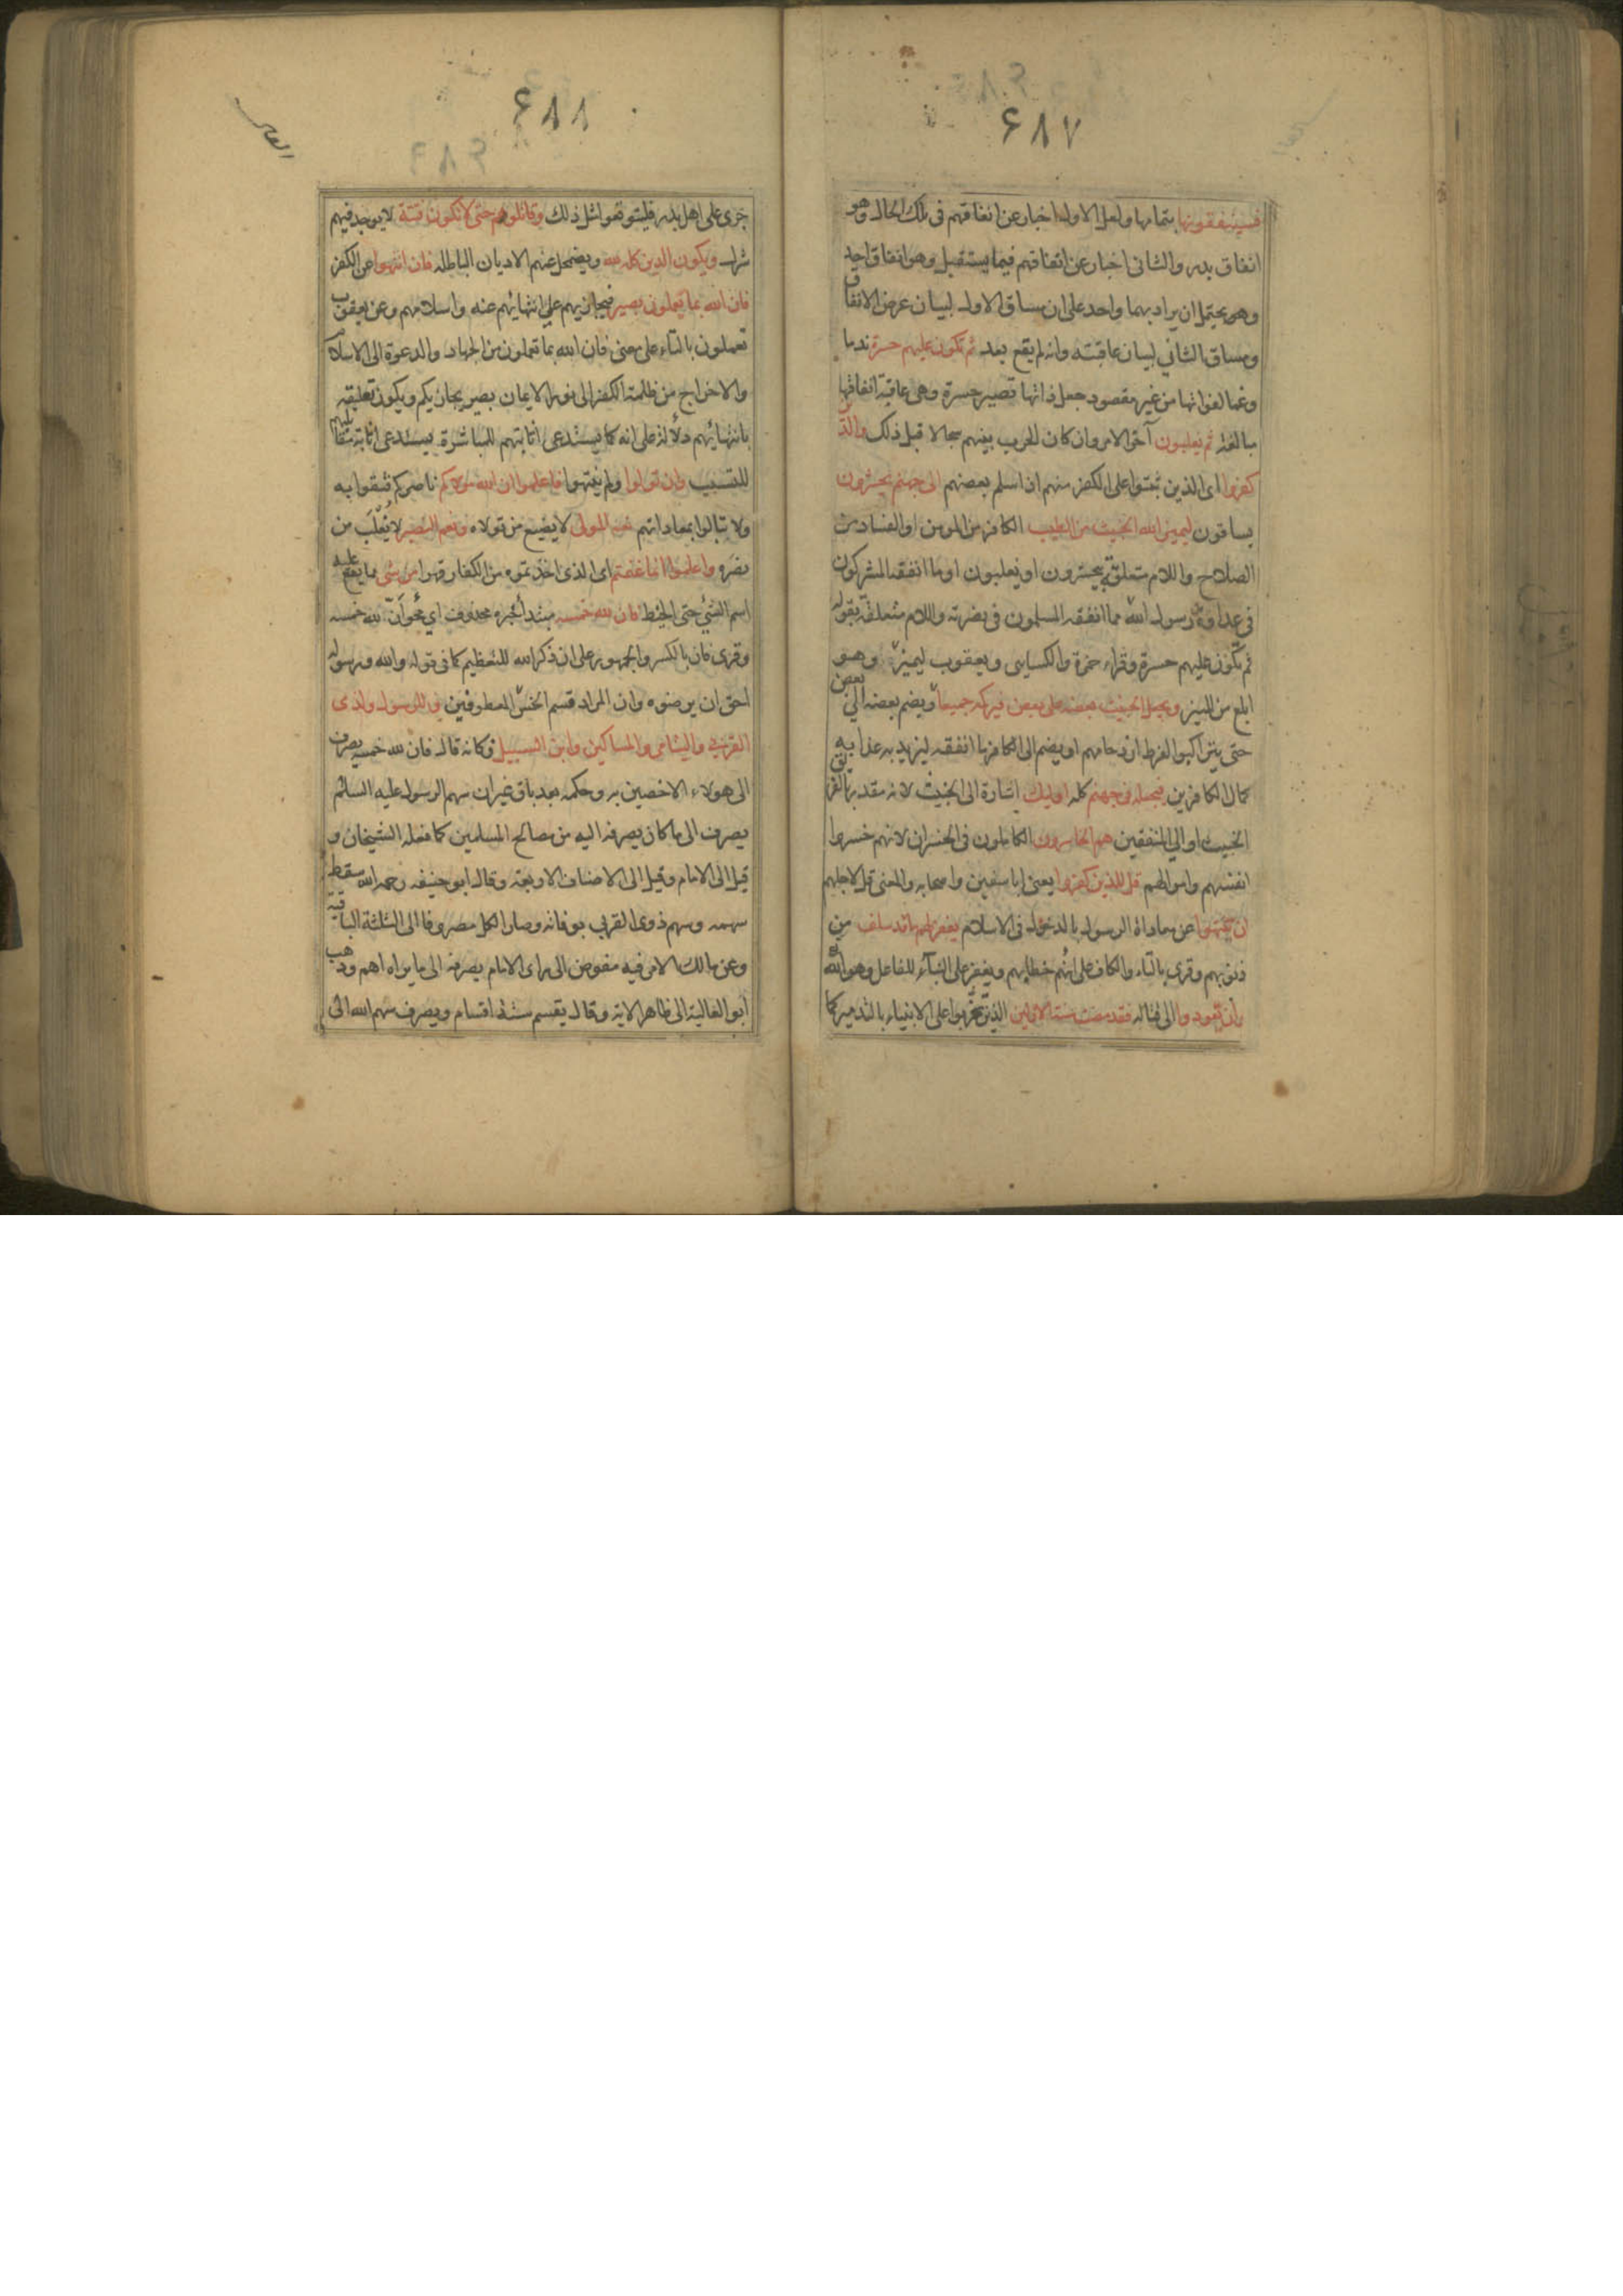 ۶۸۷
فسينفقونها بتمامها ولعل الاول اخبار عن انفاقهم فى تلك الحال وهو
انفاق بدر والثانى اخبار عن انفاقهم فيما يستقبل وهو انفاق احد
وهو يحتمل ان يراد بهما واحد على ان مساق الاول لبيان غرض الانفاق
ومساق الثانى لبيان عاقبته وانه لم يقع بعد ثم تكون عليهم حسرة ندما
وغما لفواتها من غير مقصود جعل ذاتها تصير حسرة وهى عاقبة انفاقها
مبالغة ثم يغلبون آخر الامر وان كان الحرب بينهم سجالا قبل ذلك والذين
كفروا اى الذين ثبتوا على الكفر منهم اذ اسلم بعضهم الى جهنم يحشرون
يساقون ليميز الله الخبيث من الطيب الكافر من المومن او الفساد من
الصلاح واللام متعلقة بيحشرون او يغلبون او ما انفقه المشركون
فى عداوة رسول الله مما انفقه المسلمون فى نصرته واللام متعلقة بقوله
ثم تكون عليهم حسرة وقراء حمزة والكسايى ويعقوب ليميز وهو
ابلغ من الميز ويجعل الخبيث بعضه على بعض فيركمه جميعا ويضم بعضه الى بعض
حتى يتراكبوا لفرط ازدحامهم او يضم الى الكافر ما انفقه ليزيد به عذابه
كمال الكافرين فيجعله فى جهنم كله اوليك اشارة الى الخبيث لانه مقدر بالفريق
الخبيث او الى المنفقين هم الخاسرون الكاملون فى الخسران لانهم خسروا
انفسهم واموالهم قل للذين كفروا يعنى ابا سفين واصحابه والمعنى قل لاجلهم
ان ينتهوا عن معاداة الرسول بالدخول فى الاسلام يغفر لهم ما قد سلف من
ذنوبهم وقرى بالتاء والكاف على انهم خطابهم ويغفر على البناء للفاعل وهو الله
وان يعودوا الى قتاله فقد مضت سنة الاولين الذين تحزبوا على الانبياء بالتدمير كما
۶۸۸
جرى على اهل بدر فليتوقعوا مثل ذلك وقاتلوهم حتى لا تكون فتنة لا يوجد فيهم
شرك ويكون الدين كله لله ويضمحل عنهم الاديان الباطله فان انتهوا عن الكفر
فان الله بما يعملون بصير فيجازيهم على انتهائهم عنه واسلامهم وعن يعقوب
تعملون بالتاء على معنى فان الله بما تعملون من الجهاد والدعوة الى الاسلام
والاخراج من ظلمة الكفر الى نور الايمان بصير يجازيكم ويكون تعليقه
بانتهائهم دلالة على انه كما يستدعى اثابتهم للمباشرة يستدعى اثابة مقاتليهم
للتسبيب وان تولوا ولم ينتهوا فاعلموا ان الله موليكم ناصركم فثقوا به
ولا تبالوا بمعاداتهم نعم المولى لا يضيع من تولاه ونعم النصير لا يغلب من
نصره واعلموا انما غنمتم اى الذى اخذتموه من الكفار قهرا من شى مما يقع عليه
اسم الشئ حتى الخيط فان لله خمسه مبتدأ خبره محذوف اى فحق ان لله خمسه
وقرى فان بالكسر والجمهور على ان ذكر الله للتعظيم كما فى قوله والله ورسوله
احق ان يرضوه وان المراد قسم الخمس المعطوفين وللرسول ولذى
القربى واليتامى والمساكين وابن السبيل فكانه قال فان لله خمسه يصرف
الى هولاء الاخصين به وحكمه بعد باق غير ان سهم الرسول عليه السلام
يصرف الى ما كان يصرفه اليه من مصالح المسلمين كما فعله الشيخان و
قيل الى الامام وقيل الى الاصناف الاربعة وقال ابو حنيفه رحمه الله سقط
سهمه وسهم ذوى القربى بوفاته وصار الكل مصروفا الى الثلثة الباقية
وعن مالك الامر فيه مفوض الى راى الامام يصرفه الى ما يراه اهم وذهب
ابو العالية الى ظاهر الاية وقال يقسم ستة اقسام ويصرف سهم الله الى